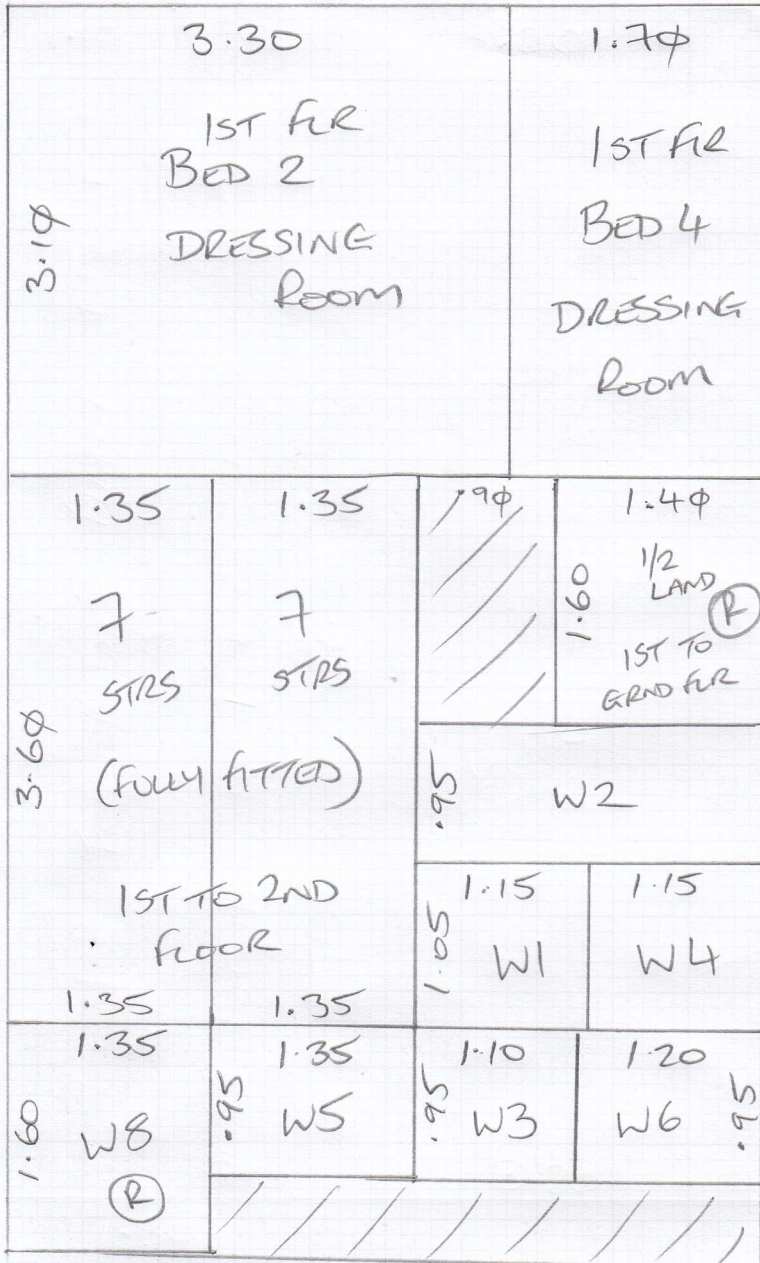 3.30
1ST FLR
BED 2
DRESSING
ROOM
3.10
1.70
1ST FLR
BED 4
DRESSING
ROOM
1.35
7
STRS
1.35
7
STRS
(FULLY FITTED)
3.60
1ST TO 2ND
FLOOR
1.35
1.35
.90
1.40
1.60
1/2
LAND
R
1ST TO
GRND FLR
.95
W2
1.15
1.05
W1
1.15
W4
1.35
1.60
W8
R
1.35
.95
W5
1.10
.95
W3
1.20
W6
.95